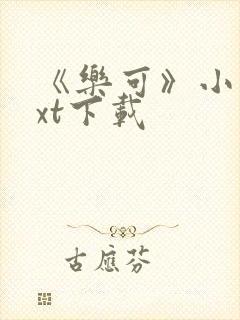 《樂可》小
xt下載
古應芬